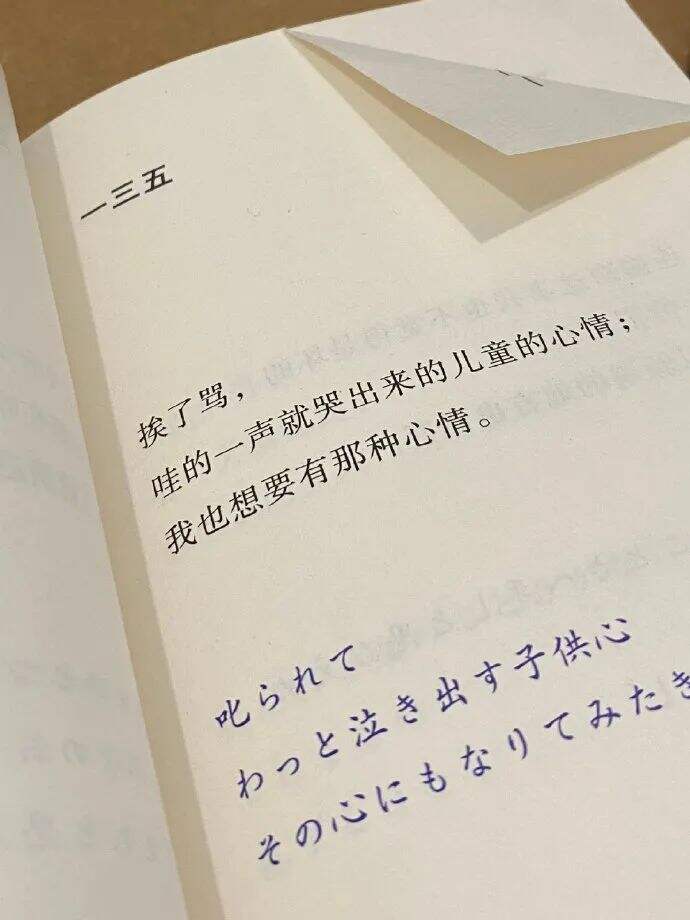 一三五
挨了骂，
哇的一声就哭出来的儿童的心情；
我也想要有那种心情。
叱られて
わっと泣き出す子供心
その心にもなりてみたき